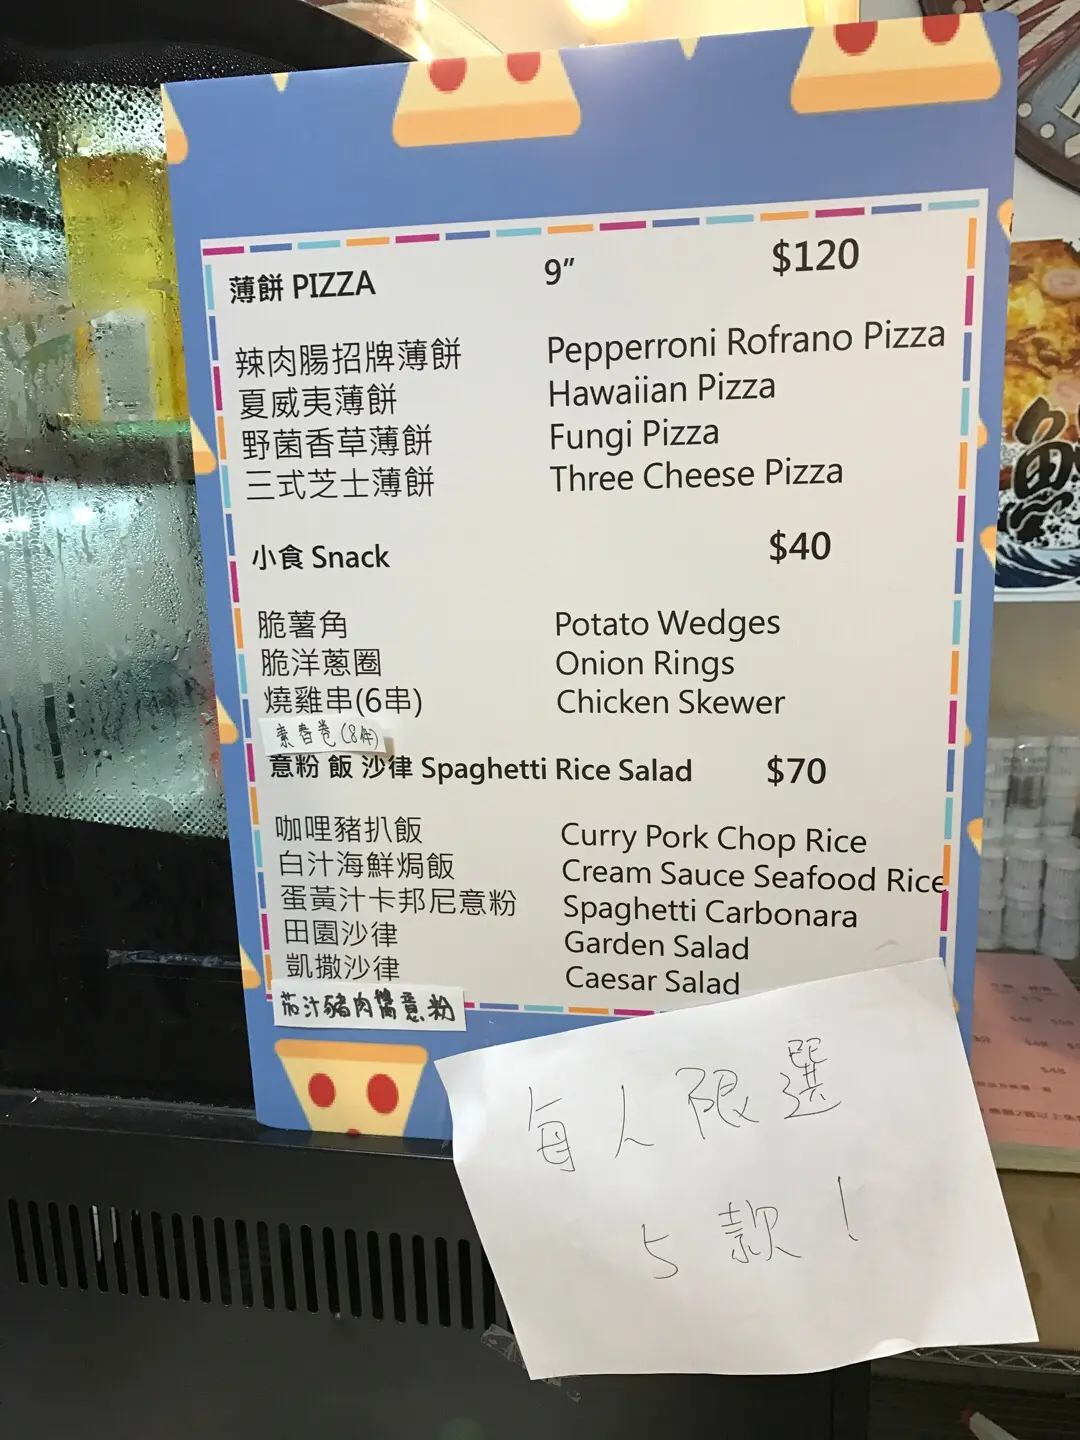 薄餅 PIZZA 9” $120
辣肉腸招牌薄餅 Pepperroni Rofrano Pizza
夏威夷薄餅 Hawaiian Pizza
野菌香草薄餅 Fungi Pizza
三式芝士薄餅 Three Cheese Pizza
小食 Snack $40
脆薯角 Potato Wedges
脆洋蔥圈 Onion Rings
燒雞串(6串) Chicken Skewer
素春卷(8件)
意粉 飯 沙律 Spaghetti Rice Salad $70
咖哩豬扒飯 Curry Pork Chop Rice
白汁海鮮焗飯 Cream Sauce Seafood Rice
蛋黃汁卡邦尼意粉 Spaghetti Carbonara
田園沙律 Garden Salad
凱撒沙律 Caesar Salad
茄汁豬肉醬意粉
每人限選
5款!
魚